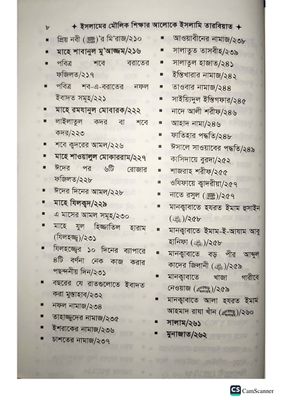 ৮ ✦ ইসলামের মৌলিক শিক্ষার আলোকে ইসলামি তারবিয়াত ✦
■ প্রিয় নবী (ﷺ)'র মি'রাজ/২১০
■ মাহে শাবানুল মু'আজ্জম/২১৬
■ পবিত্র শবে বরাতের
ফজিলত/২১৭
■ পবিত্র শব-এ-বরাতের নফল
ইবাদত সমূহ/২২১
■ মাহে রমযানুল মোবারক/২২২
■ লাইলাতুল কদর বা শবে
কদর/২২৩
■ শবে কুদরের আমল/২২৬
■ মাহে শাওয়ালুল মোকাররাম/২২৭
■ ঈদের পর ৬টি রোজার
ফজিলত/২২৮
■ ঈদের দিনের আমল/২২৮
■ মাহে যিলক্বদ/২২৯
■ এ মাসের আমল সমূহ/২৩০
■ মাহে যুল হিজ্জাতিল হারাম
(যিলহজ্ব)/২৩১
■ যিলহজ্বের ১০ দিনের ব্যাপারে
৪টি বর্ণনা নেক কাজ করার
পছন্দনীয় দিন/২৩১
■ বছরের যে রাতগুলোতে ইবাদত
করা মুস্তাহাব/২৩২
■ নফল নামাজ/২৩৪
■ তাহাজ্জুদের নামাজ/২৩৫
■ ইশরাকের নামাজ/২৩৬
■ চাশতের নামাজ/২৩৭
■ আওয়াবীনের নামাজ/২৩৮
■ সালাতুত তাসবীহ/২৩৯
■ সালাতুল হাজাত/২৪১
■ ইস্তিখারার নামাজ/২৪২
■ তাওবার নামাজ/২৪৪
■ সাইয়্যিদুল ইস্তিগফার/২৪৫
■ নাদে আলী শরীফ/২৪৬
■ আহাদ নামা/২৪৬
■ ফাতিহার পদ্ধতি/২৪৮
■ ঈসালে সাওয়াবের পদ্ধতি/২৪৯
■ কাসিদায়ে বুরদা/২৫২
■ শাজরাহ শরীফ/২৫৫
■ ওযিফায়ে ক্বাদরীয়া/২৫৭
■ নাতে রসুল (ﷺ)/২৫৭
■ মানক্বাবাতে হযরত ইমাম হুসাইন
/২৫৮
■ মানক্বাবাতে ইমাম-ই-আযম আবু
হানিফা /২৫৮
■ মানক্বাবাতে বড় পীর আব্দুল
কাদের জিলানী /২৫৯
■ মানক্বাবাতে খাজা গারীবে
নেওয়াজ /২৫৯
■ মানক্বাবাতে আলা হযরত ইমাম
আহমাদ রাযা খাঁন /২৬০
■ সালাম/২৬১
■ মুনাজাত/২৬২
CS CamScanner